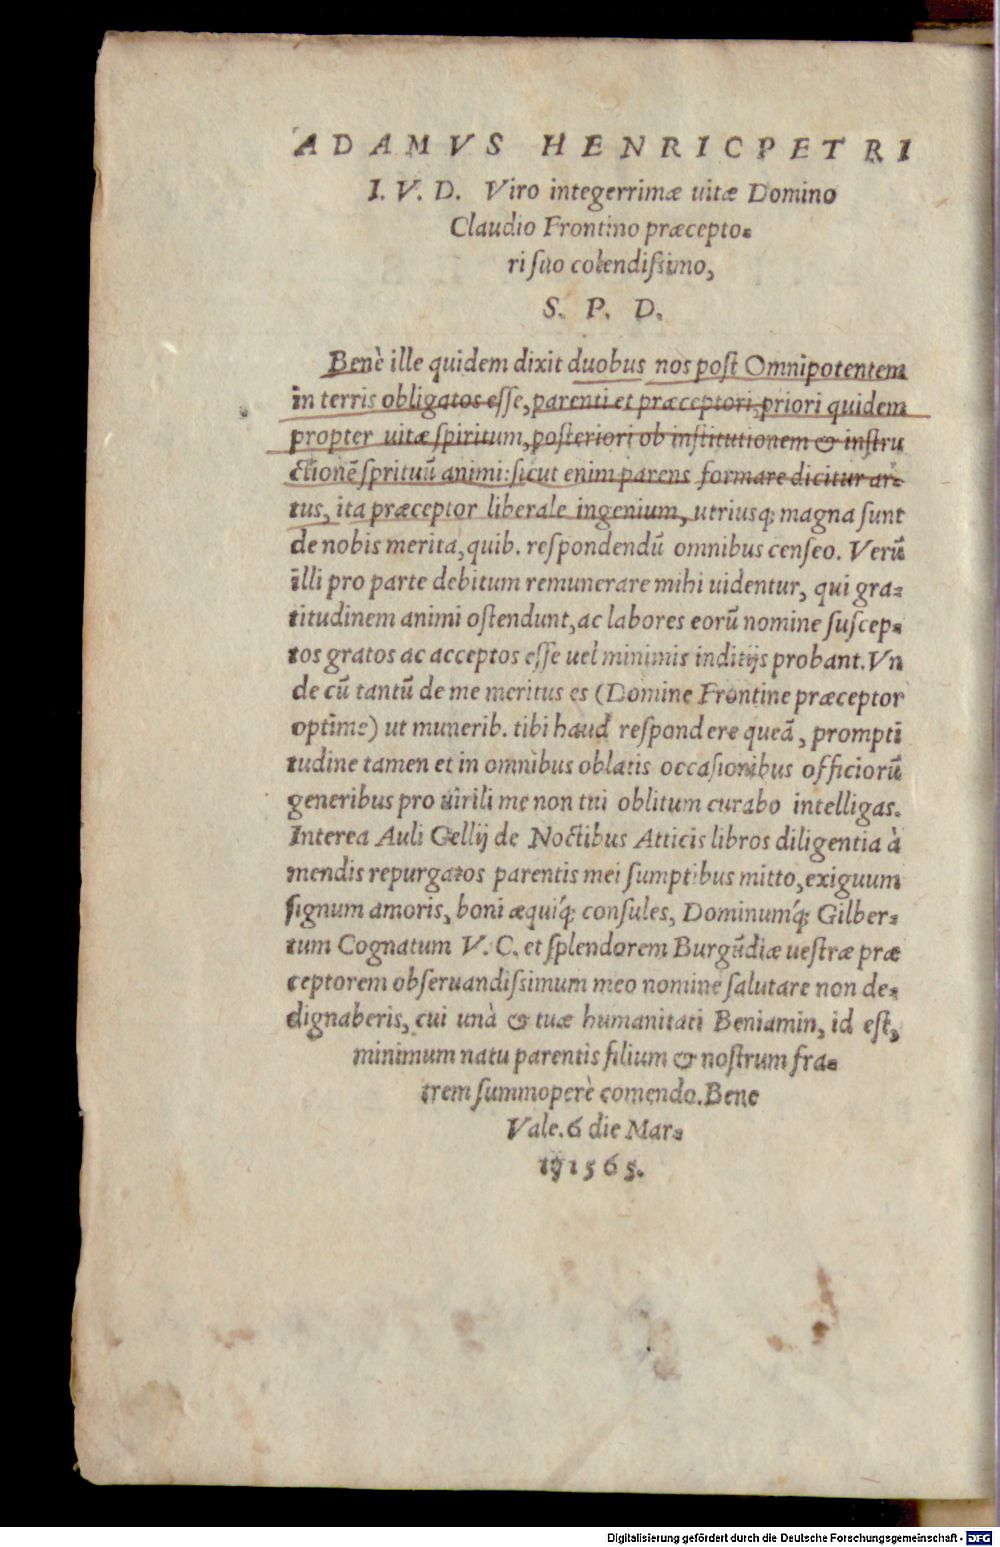 ADAMVS HENRICPETRI
I. V. D. Viro integerrimæ uitæ Domino
Claudio Frontino præcepto-
ri suo colendissimo,
S. P. D.
Benè ille quidem dixit duobus nos post Omnipotentem
in terris obligatos esse, parenti et præceptori, priori quidem
propter uitæ spiritum, posteriori ob institutionem & instru
ctionē sprituū animi: sicut enim parens formare dicitur ar-
tus, ita præceptor liberale ingenium, utriusq; magna sunt
de nobis merita, quib. respondendū omnibus censeo. Verū
illi pro parte debitum remunerare mihi uidentur, qui gra-
titudinem animi ostendunt, ac labores eorū nomine suscep-
tos gratos ac acceptos esse uel minimis inditijs probant. Vn
de cū tantū de me meritus es (Domine Frontine præceptor
optime) ut munerib. tibi haud respondere queā, prompti
tudine tamen et in omnibus oblatis occasionibus officiorū
generibus pro uirili me non tui oblitum curabo intelligas.
Interea Auli Gellij de Noctibus Atticis libros diligentia à
mendis repurgatos parentis mei sumptibus mitto, exiguum
signum amoris, boni æquiq́; consules, Dominumq́; Gilber-
tum Cognatum V. C. et splendorem Burgūdiæ uestræ præ
ceptorem obseruandissimum meo nomine salutare non de-
dignaberis, cui unà & tuæ humanitati Beniamin, id est,
minimum natu parentis filium & nostrum fra-
trem summoperè comendo. Bene
Vale. 6 die Mar-
tij 1565.
Digitalisierung gefördert durch die Deutsche Forschungsgemeinschaft - DFG